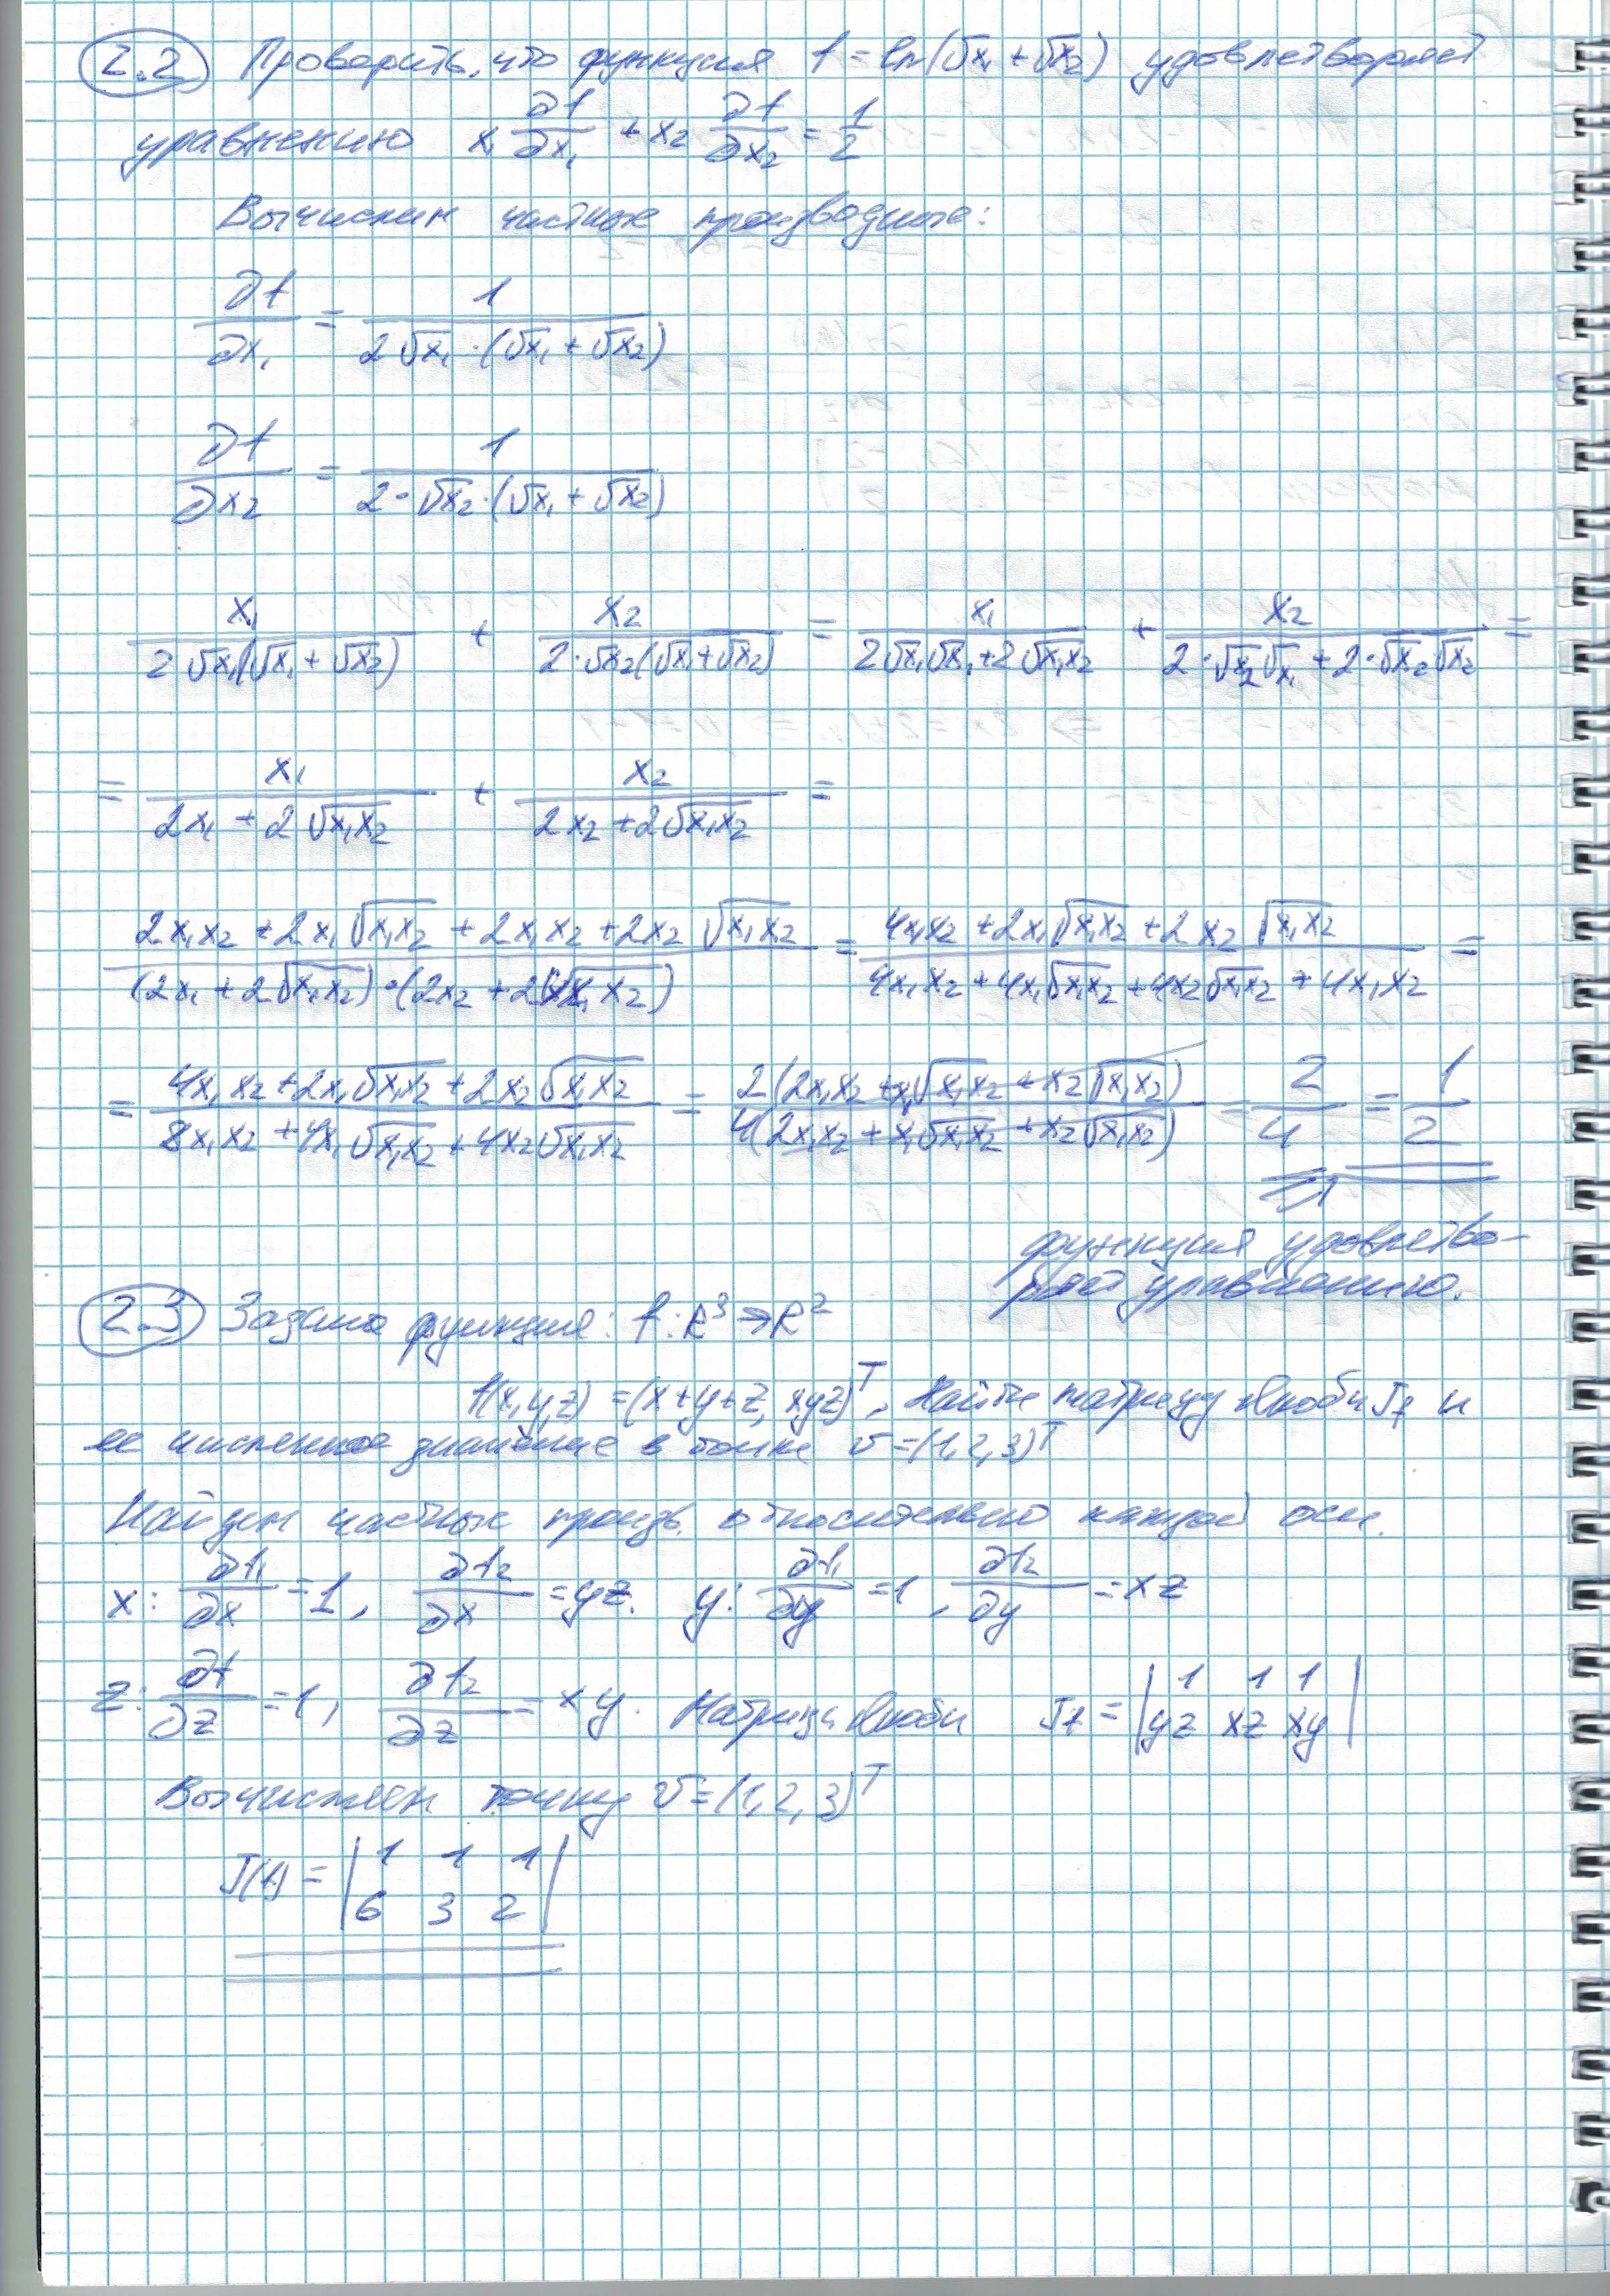 2.2 Проверить, что функция f = ln(√x₁ + √x₂) удовлетворяет
уравнению x₁ ∂f/∂x₁ + x₂ ∂f/∂x₂ = 1/2
Вычислим частные производные:
∂f/∂x₁ = 1/(2√x₁·(√x₁ + √x₂))
∂f/∂x₂ = 1/(2·√x₂·(√x₁ + √x₂))
x₁/(2√x₁(√x₁ + √x₂)) + x₂/(2·√x₂(√x₁ + √x₂)) = x₁/(2√x₁√x₁ + 2√x₁x₂) + x₂/(2·√x₂√x₁ + 2·√x₂√x₂) =
= x₁/(2x₁ + 2√x₁x₂) + x₂/(2x₂ + 2√x₁x₂) =
(2x₁x₂ + 2x₁√x₁x₂ + 2x₁x₂ + 2x₂√x₁x₂)/((2x₁ + 2√x₁x₂)·(2x₂ + 2√x₁x₂)) = (4x₁x₂ + 2x₁√x₁x₂ + 2x₂√x₁x₂)/(4x₁x₂ + 4x₁√x₁x₂ + 4x₂√x₁x₂ + 4x₁x₂) =
= (4x₁x₂ + 2x₁√x₁x₂ + 2x₂√x₁x₂)/(8x₁x₂ + 4x₁√x₁x₂ + 4x₂√x₁x₂) = 2(2x₁x₂ + x₁√x₁x₂ + x₂√x₁x₂)/4(2x₁x₂ + x₁√x₁x₂ + x₂√x₁x₂) = 2/4 = 1/2
функция удовлетво-
ряет уравнению.
2.3 Задана функция: f: R³ → R²
f(x,y,z) = (x+y+z, xyz)ᵀ, Найти матрицу Якоби Jf и
ее численное значение в точке v = (1,2,3)ᵀ
Найдем частные произв. относительно каждой оси.
x: ∂f₁/∂x = 1, ∂f₂/∂x = yz. y: ∂f₁/∂y = 1, ∂f₂/∂y = xz
z: ∂f/∂z = 1, ∂f₂/∂z = xy. Матрица Якоби Jf = |1 1 1
yz xz xy|
Вычисляем точку v = (1,2,3)ᵀ
J(f) = |1 1 1
6 3 2|